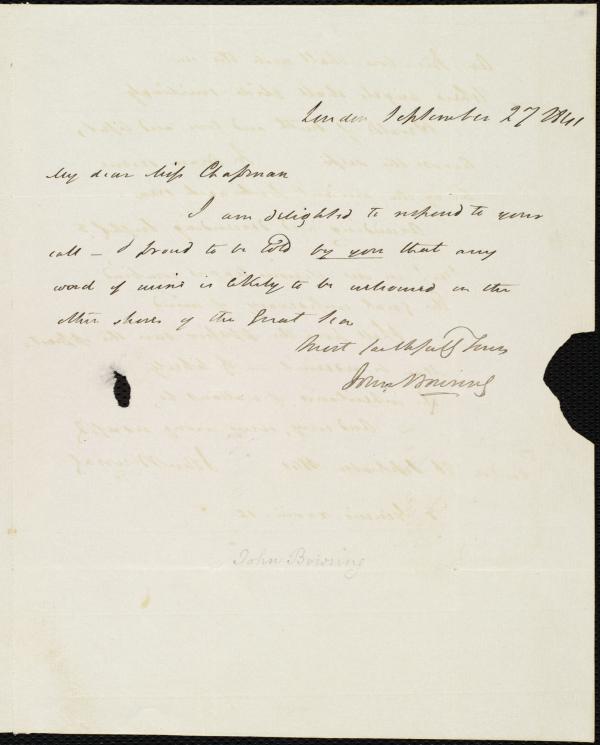 London September 27 1841
My dear Miss Chapman
I am delighted to respond to your
call – & proud to be told by you that any
word of mine is likely to be welcomed on the
other shores of the Great Sea
Most faithfully Yours
John Bowring
John Bowring